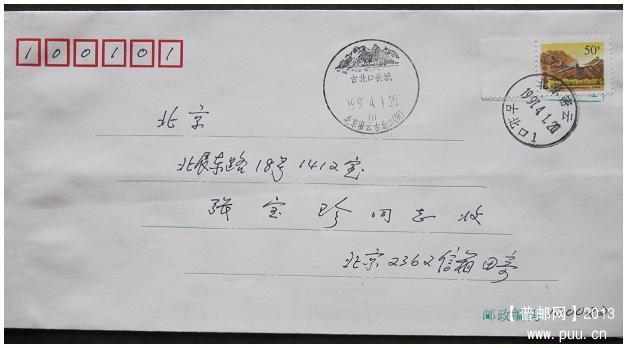 100101
50
古北口长城
1997.4.1.20
北京密云
1997.4.1.20
古北口1
北京
北展东路18号1412室
张宝珍同志收
北京2362信箱田寄
邮政编码
【普邮网】2013
www.puu.cn